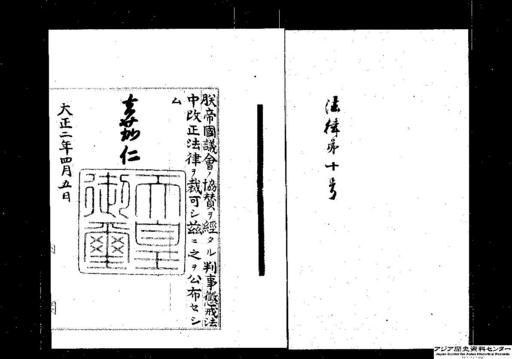 法律第十号
朕帝國議會ノ協賛ヲ經タル判事懲戒法
中改正法律ヲ裁可シ茲ニ之ヲ公布セシ
ム
嘉仁
天皇
御璽
大正二年四月五日
アジア歴史資料センター
Japan Center for Asian Historical Records